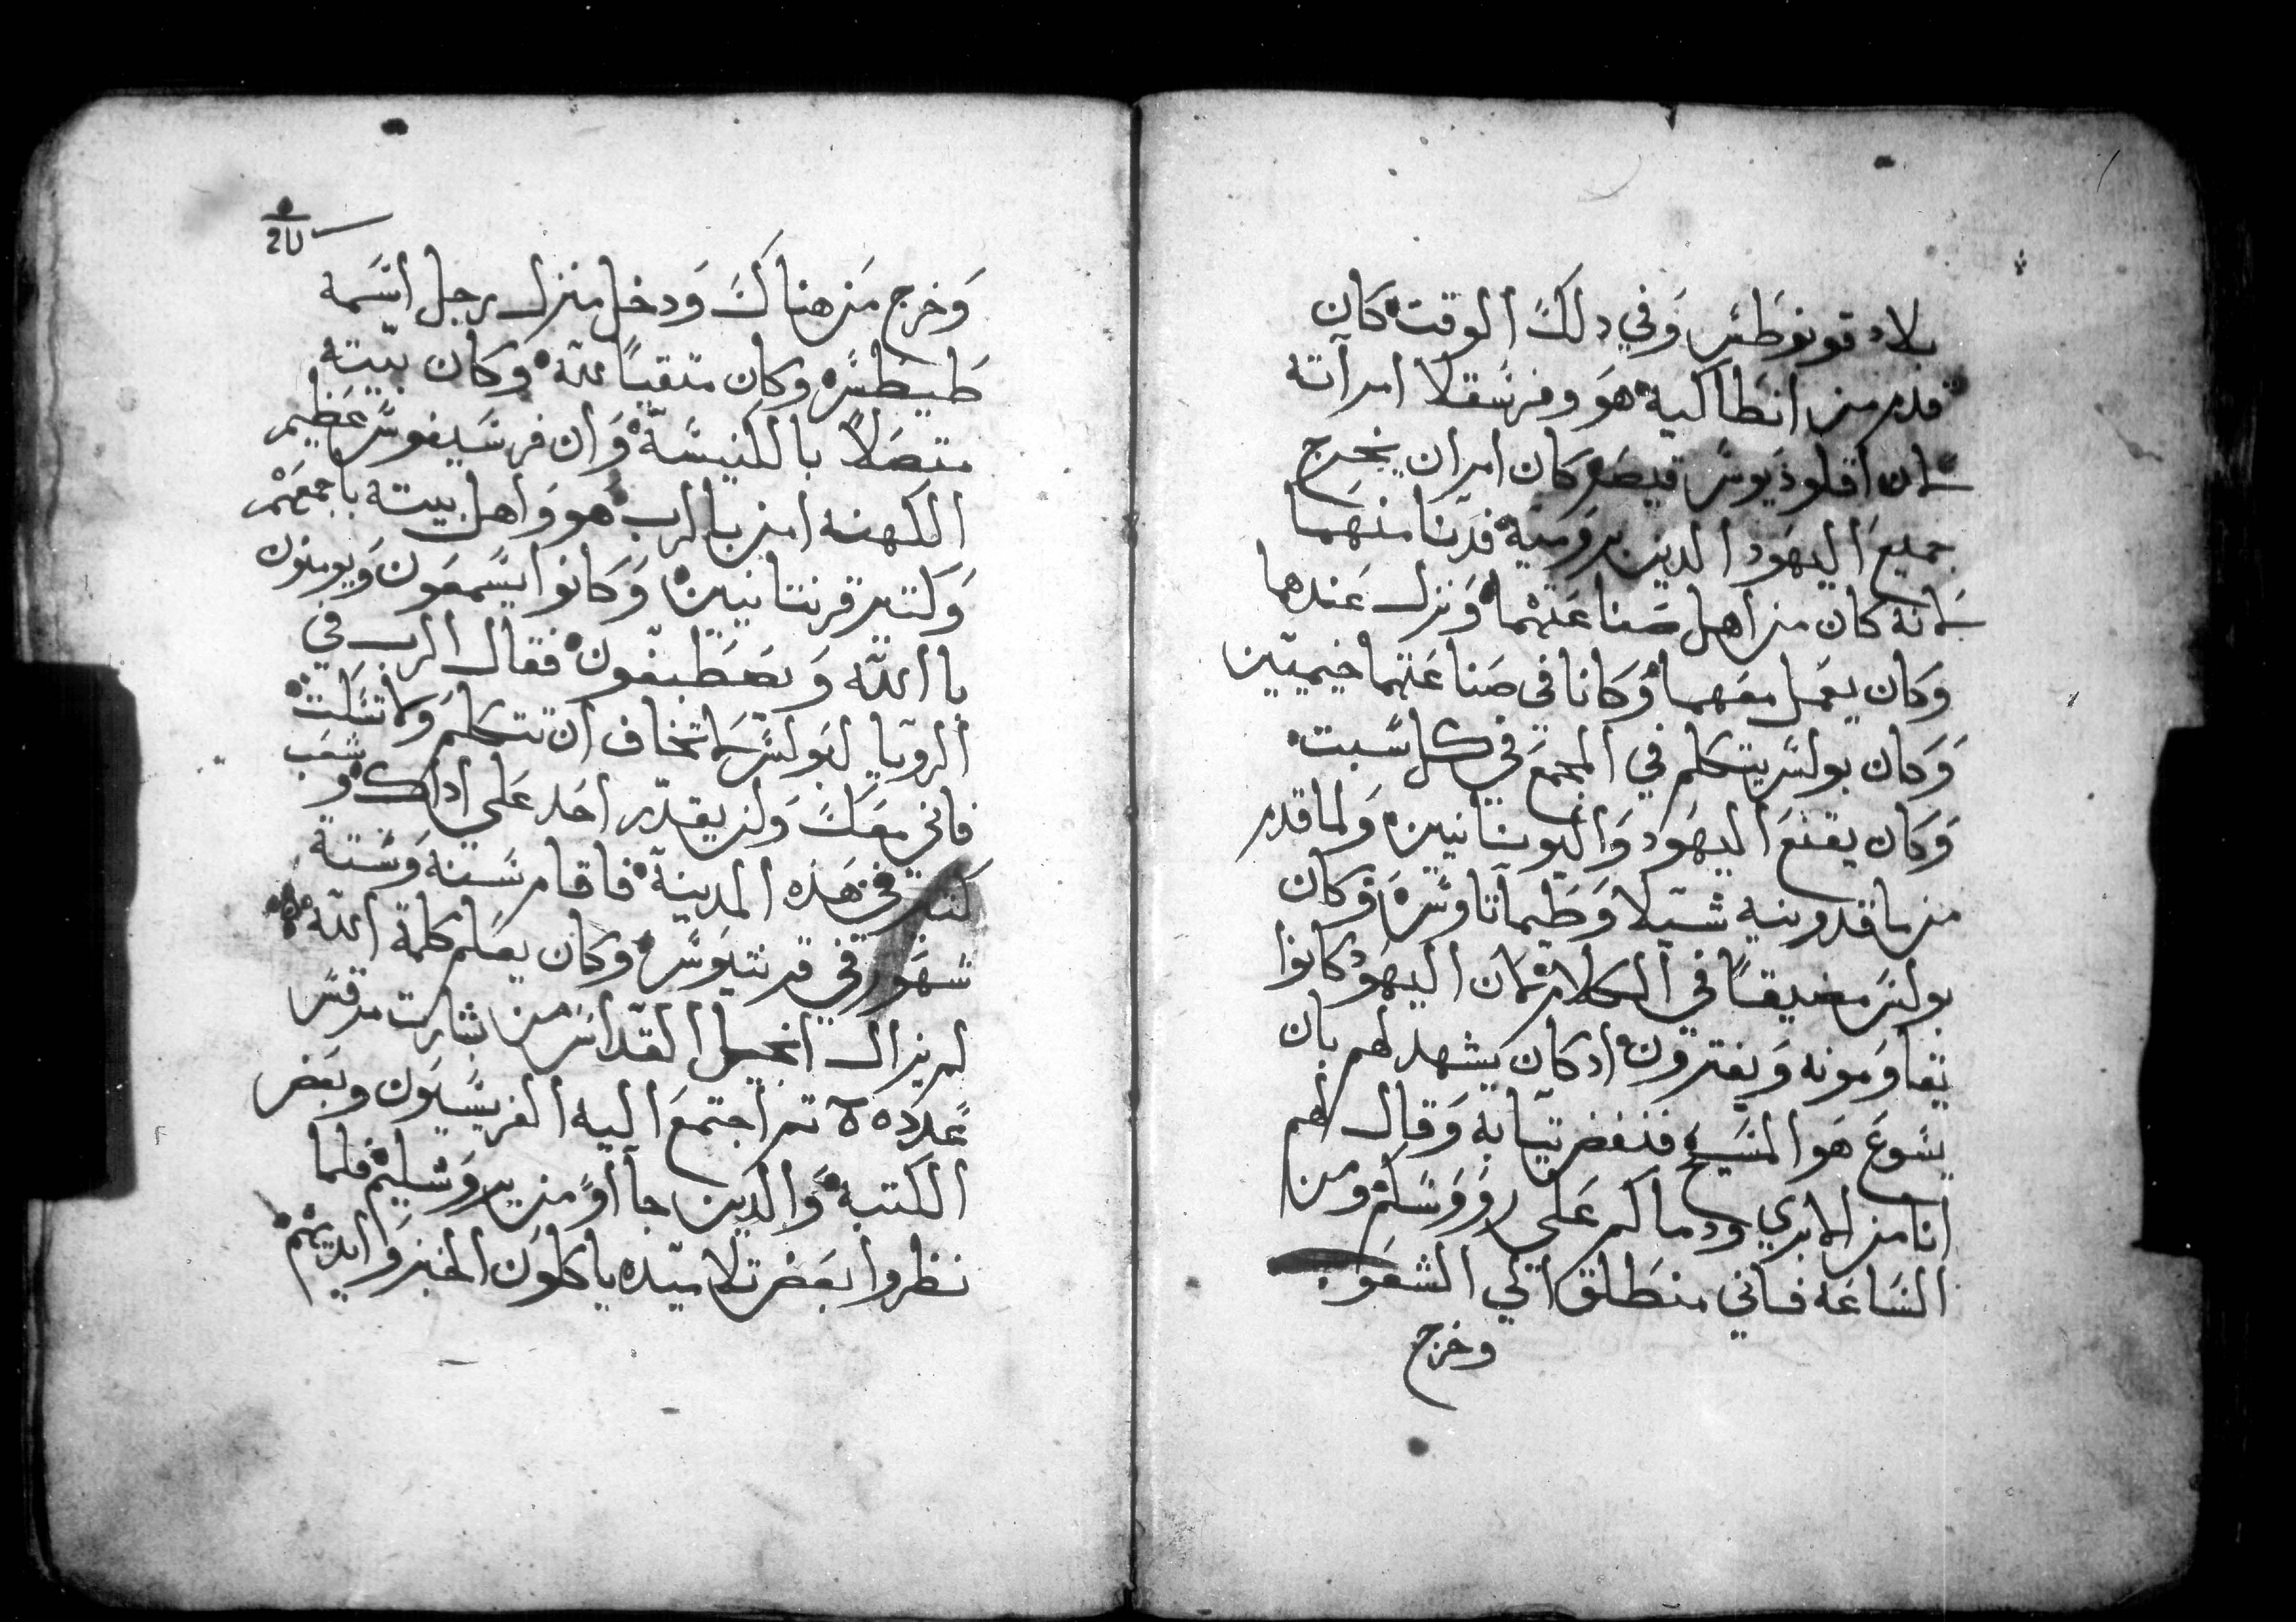 بلاد قونوطس وفي دلك الوقت كان
قدم من انطاكية هو وفرسقلا امرآته
لان اقلوديوس قيصر كان امر ان يخرج
جميع اليهود الدين برومية فدنا منهما
لانه كان من اهل صناعتهما ونزل عندهما
وكان يعمل معهما وكانا في صناعتهما خيميين
وكان بولس يتكلم في المجمع في كل سبت
وكان يقنع اليهود واليونانيين ولما قدم
من ماقدونيه شيلا وطيماتاوس وكان
بولس مضيقا في الكلام لان اليهود كانوا
يقاومونه ويفترون اد كان يشهد لهم بان
يسوع هو المسيح فنفض تيابه وقال لهم
انا من الان بري ودماكم على رووسكم ومن
الساعه فاني منطلق الي الشعوب
وخرج
وخرج من هناك ودخل منزل رجل اسمه
طيطس وكان متقيا لله وكان بيته
متصلا بالكنيسة وان فرسيفوس عظيم
الكهنه امن بالرب هو واهل بيته باجمعهم
وكتير قرنتانيين وكانوا يسمعون ويومنون
با الله ويصطبغون فقال الرب في
الرويا لبولس لا تخاف ان تتكلم ولا تسكت
فاني معك ولن يقدر احد على اداك و شعب
كتير في هذه المدينة فاقام سنه وستة
شهور في قرنتيوس وكان يعلم كلمة الله
لم يزال انجيل القداس من بشارت مرقس
عدده تم اجتمع اليه الفريسيون وبعض
الكتبة والدين جااو من يروشليم فلما
نظروا بعض تلاميده ياكلون الخبز وايديهم